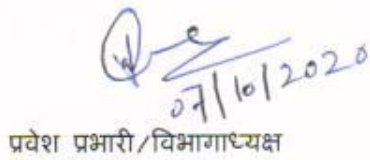 07/10/2020
प्रवेश प्रभारी/विभागाध्यक्ष